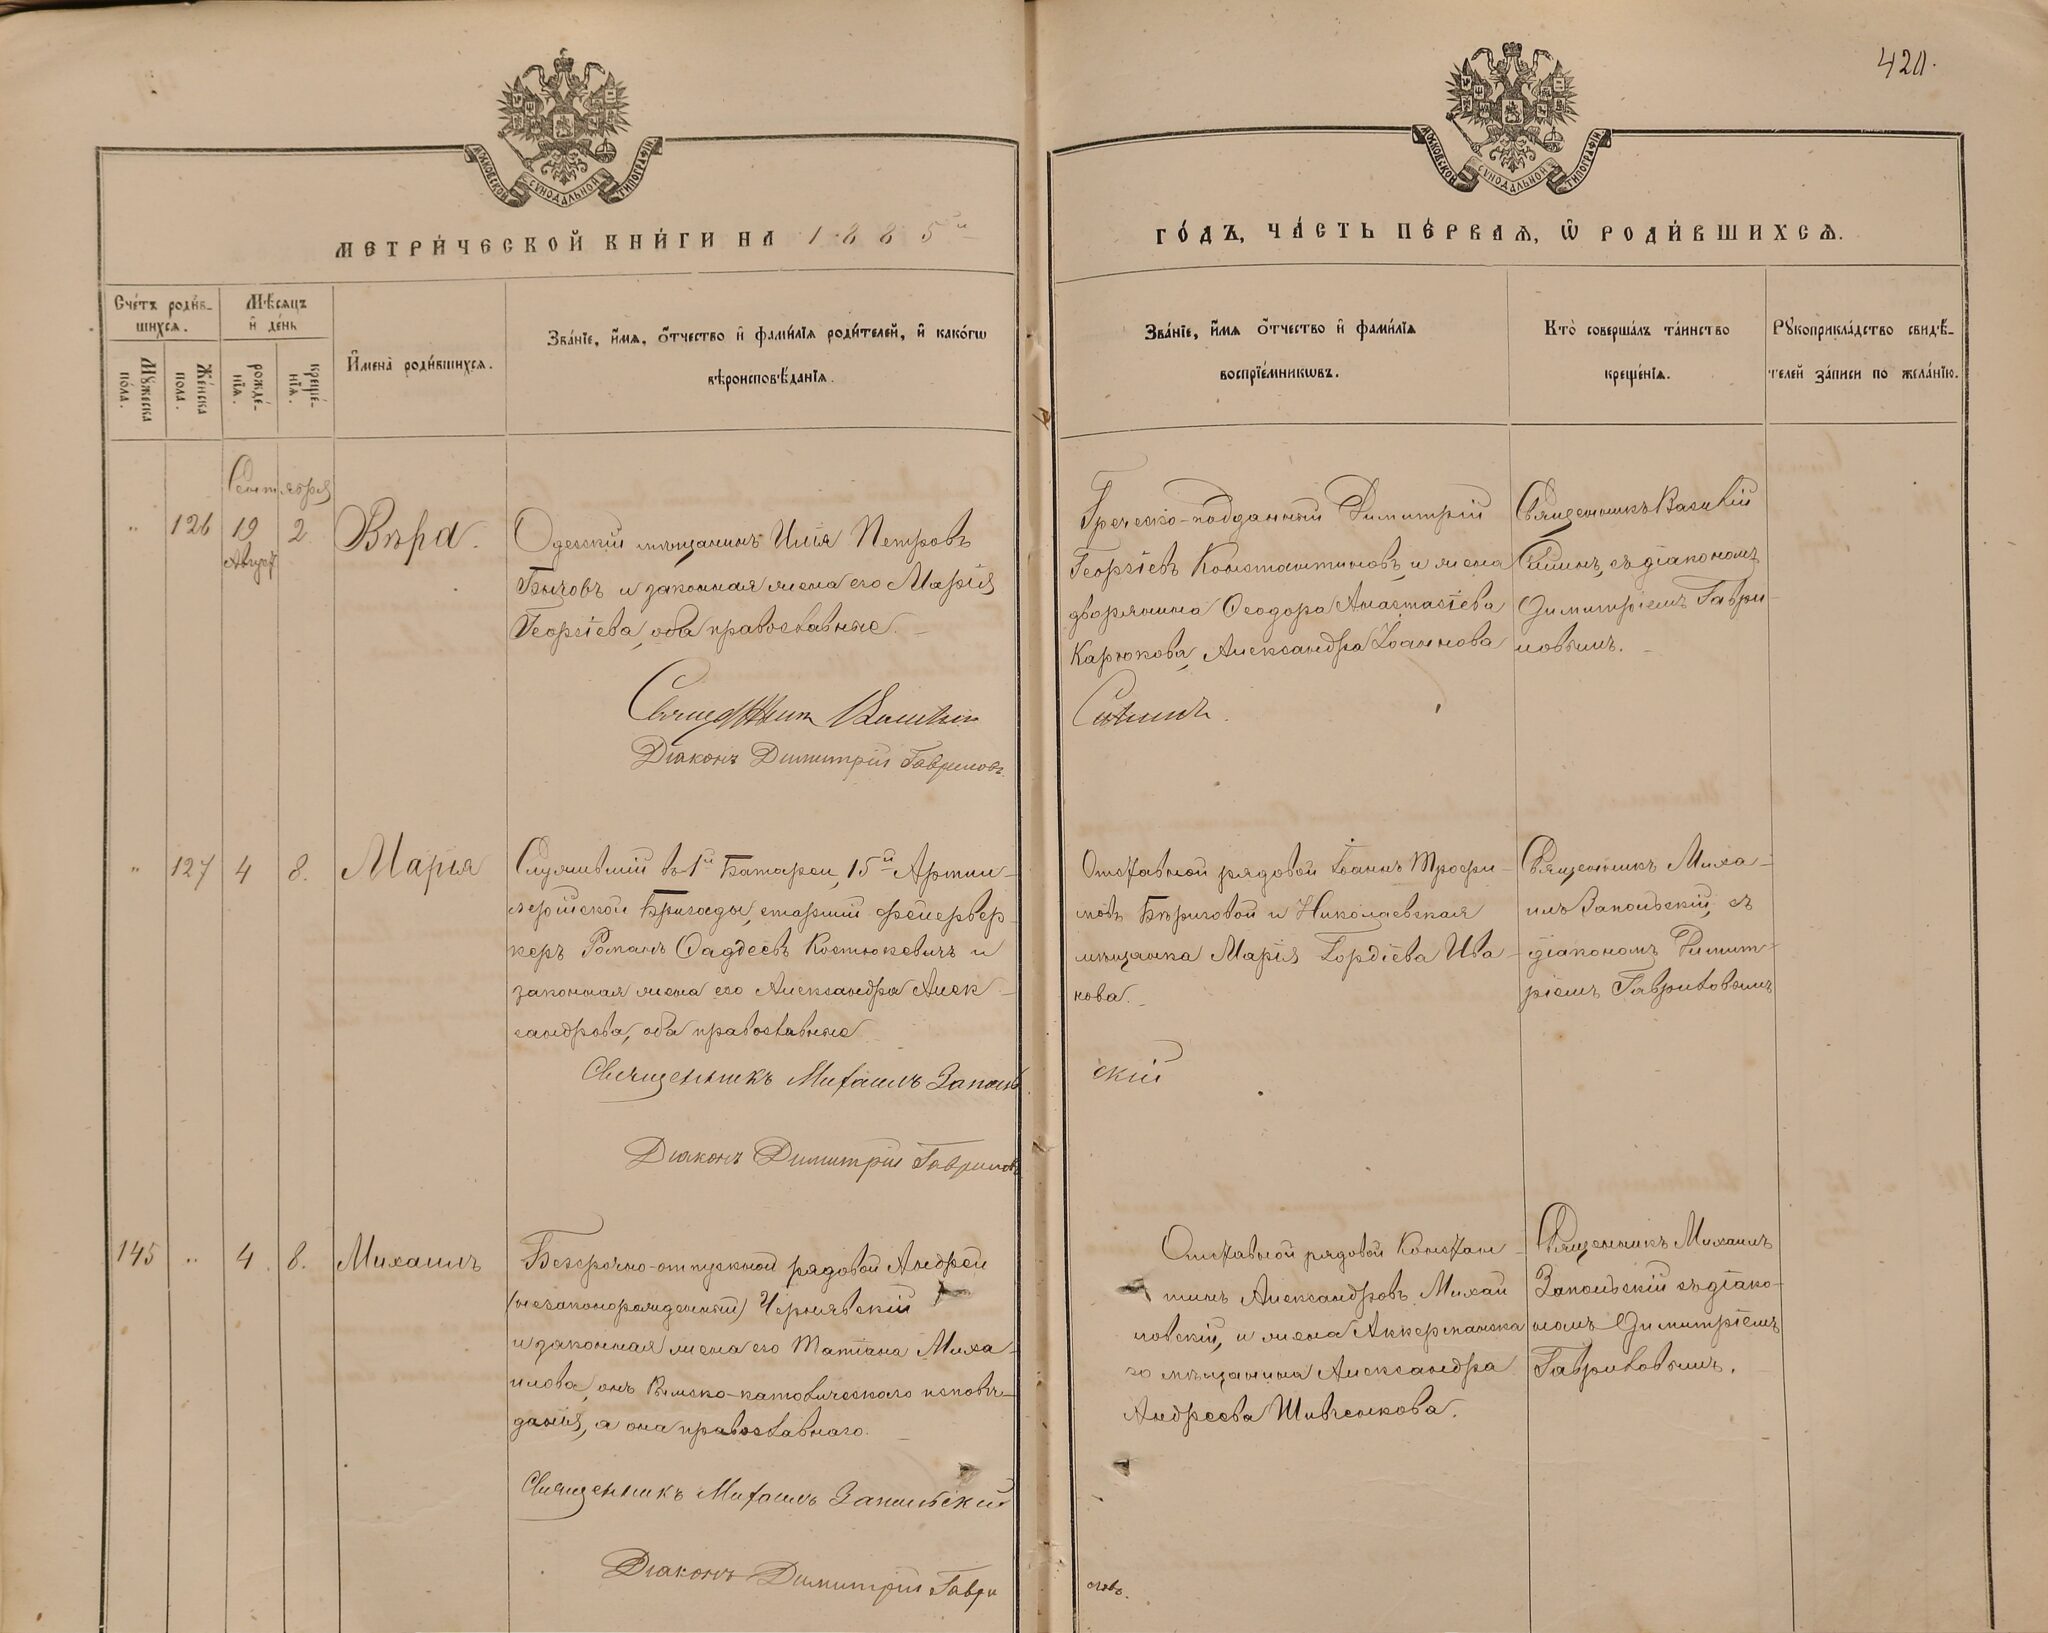 420.
МОСКОВСКОЙ СѴНОДАЛЬНОЙ ТИПОГРАФІИ
МОСКОВСКОЙ СѴНОДАЛЬНОЙ ТИПОГРАФІИ
МЕТРИ́ЧЕСКОЙ КНИ́ГИ НА 1885й
ГО́ДЪ, ЧА́СТЬ ПЕ́РВАѦ, Ѡ҆ РОДИ́ВШИХСѦ.
Сче́тъ роди́в-
шихсѧ.
Мꙋ́жеска по́ла.
Же́нска пола.
Мѣ́сѧцъ
и҆ де́нь
рожде́-нїѧ.
креще́-нїѧ.
И҆мена̀ роди́вшихсѧ.
Зва́нїе, и҆́мѧ, ѻ҆́тчество и҆ фами́лїѧ роди́телей, и҆ како́гѡ
вѣроисповѣ́данїѧ.
Зва́нїе, и҆́мѧ ѻ҆́тчество и҆ фами́лїѧ
воспрїе́мникѡвъ.
Кто̀ соверша́лъ та́инство
креще́нїѧ.
Рꙋкоприкла́дство свидѣ́-
телей за́писи по жела́нїю.
Сентября
" 126 19 2. Вѣра.
Август
Одесскій мѣщанинъ Илія Петровъ
Бычовъ и законная жена его Марія
Георгіева, оба православные.
Священникъ Василій
Діаконъ Димитрій Гавриловъ
Греческо-подданный Димитрій
Георгіевъ Константиновъ, и жена
дворянина Ѳеодора Анастасіева
Карюкова, Александра Іоаннова
Священникъ Василій
съ діакономъ
Димитріемъ Гаври-
ловымъ.
" 127 4 8. Марія
Служившій въ 1й Батареи, 15й Артил-
лерійской Бригады, старшій фейервер-
керъ Романъ Ѳаддеевъ Костюкевичъ и
законная жена его Александра Алек-
сандрова, оба православные
Священникъ Михаилъ Заполь
Діаконъ Димитрій Гавриловъ
Отставной рядовой Іоаннъ Трофи-
мовъ и Николаевская
мѣщанка Марія Гордіева Ива-
нова.
скій
Священникъ Миха-
илъ Запольскій, съ
діакономъ Димит-
ріемъ Гавриловымъ
145 " 4 8. Михаилъ
Безсрочно-отпускной рядовой Андрей
(незаконорожденный) Чернявскій
и законная жена его Татіана Миха-
илова, онъ Римско-католическаго исповѣ-
данія, а она православнаго.
Священникъ Михаилъ Запольскій
Діаконъ Димитрій Гаври
Отставной рядовой Констан-
тинъ Александровъ Михай
ловскій, и жена Аккерманска
го мѣщанина Александра
Андреева Шевченкова.
ловъ.
Священникъ Михаилъ
Запольскій съ діако-
номъ Димитріемъ
Гавриловымъ.